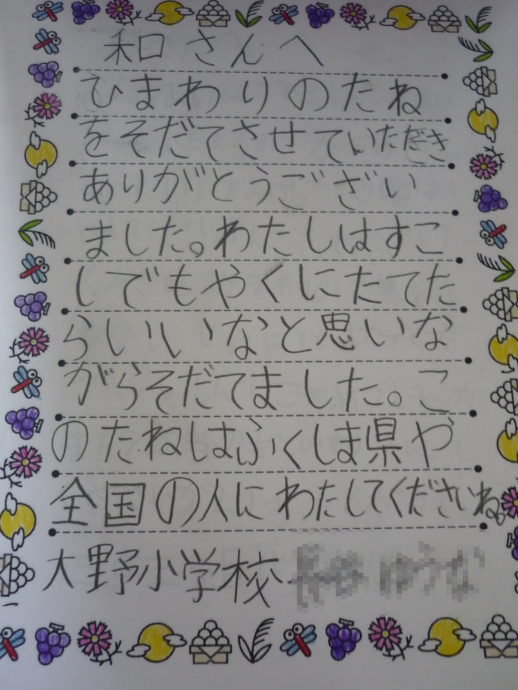 和さんへ
ひまわりのたね
をそだてさせていただき
ありがとうござい
ました。わたしはすこ
しでもやくにたてた
らいいなと思いな
がらそだてました。こ
のたねはふくしま県や
全国の人にわたしてくださいね。
大野小学校 ゆうな